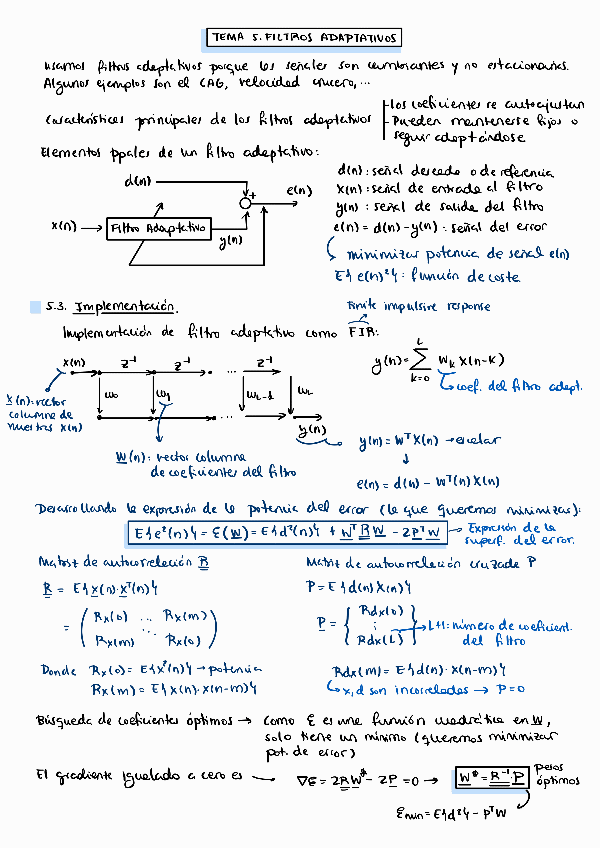 TEMA 5. FILTROS ADAPTATIVOS
Usamos filtros adaptativos porque las señales son cambiantes y no estacionarias.
Algunos ejemplos son el CAG, velocidad crucero,...
Características principales de los filtros adaptativos
Los coeficientes se autoajustan
Pueden mantenerse fijos o
seguir adaptándose
Elementos ppales de un filtro adaptativo:
d(n)
+
e(n)
x(n)
Filtro Adaptativo
-
y(n)
d(n): señal deseada o de referencia
x(n): señal de entrada al filtro
y(n): señal de salida del filtro
e(n) = d(n) - y(n): señal del error
minimizar potencia de señal e(n)
E{e(n)²}: función de coste
5.3. Implementación.
Finite impulsive response
Implementación de filtro adaptativo como FIR:
x(n) z⁻¹ z⁻¹ ... z⁻¹
w₀ w₁ w_{L-1} w_L
...
y(n)
X(n): vector
columna de
nuestras x(n)
W(n): vector columna
de coeficientes del filtro
y(n) = Σ_{k=0}^{L} W_k X(n-k)
coef. del filtro adapt.
y(n) = WᵀX(n) → escalar
↓
e(n) = d(n) - Wᵀ(n)X(n)
Desarrollando la expresión de la potencia del error (la que queremos minimizar):
E{e²(n)} = ℰ(W) = E{d²(n)} + WᵀRW - 2PᵀW
Expresión de la
superf. del error.
Matriz de autocorrelación R
R = E{X(n)·Xᵀ(n)}
= ( Rx(0) ... Rx(m)
⋱
Rx(m) Rx(0) )
Donde Rx(0) = E{x²(n)} → potencia
Rx(m) = E{x(n)·x(n-m)}
Matriz de autocorrelación cruzada P
P = E{d(n)X(n)}
P = { Rdx(0)
⋮
Rdx(L) }
L+1: número de coeficient.
del filtro
Rdx(m) = E{d(n)·x(n-m)}
x,d son incorreladas → P=0
Búsqueda de coeficientes óptimos → Como ℰ es una función cuadrática en W,
solo tiene un mínimo (queremos minimizar
pot. de error)
El gradiente igualado a cero es → ∇ℰ = 2RW* - 2P = 0 → W* = R⁻¹·P
pesos
óptimos
ℰmin = E{d²} - PᵀW